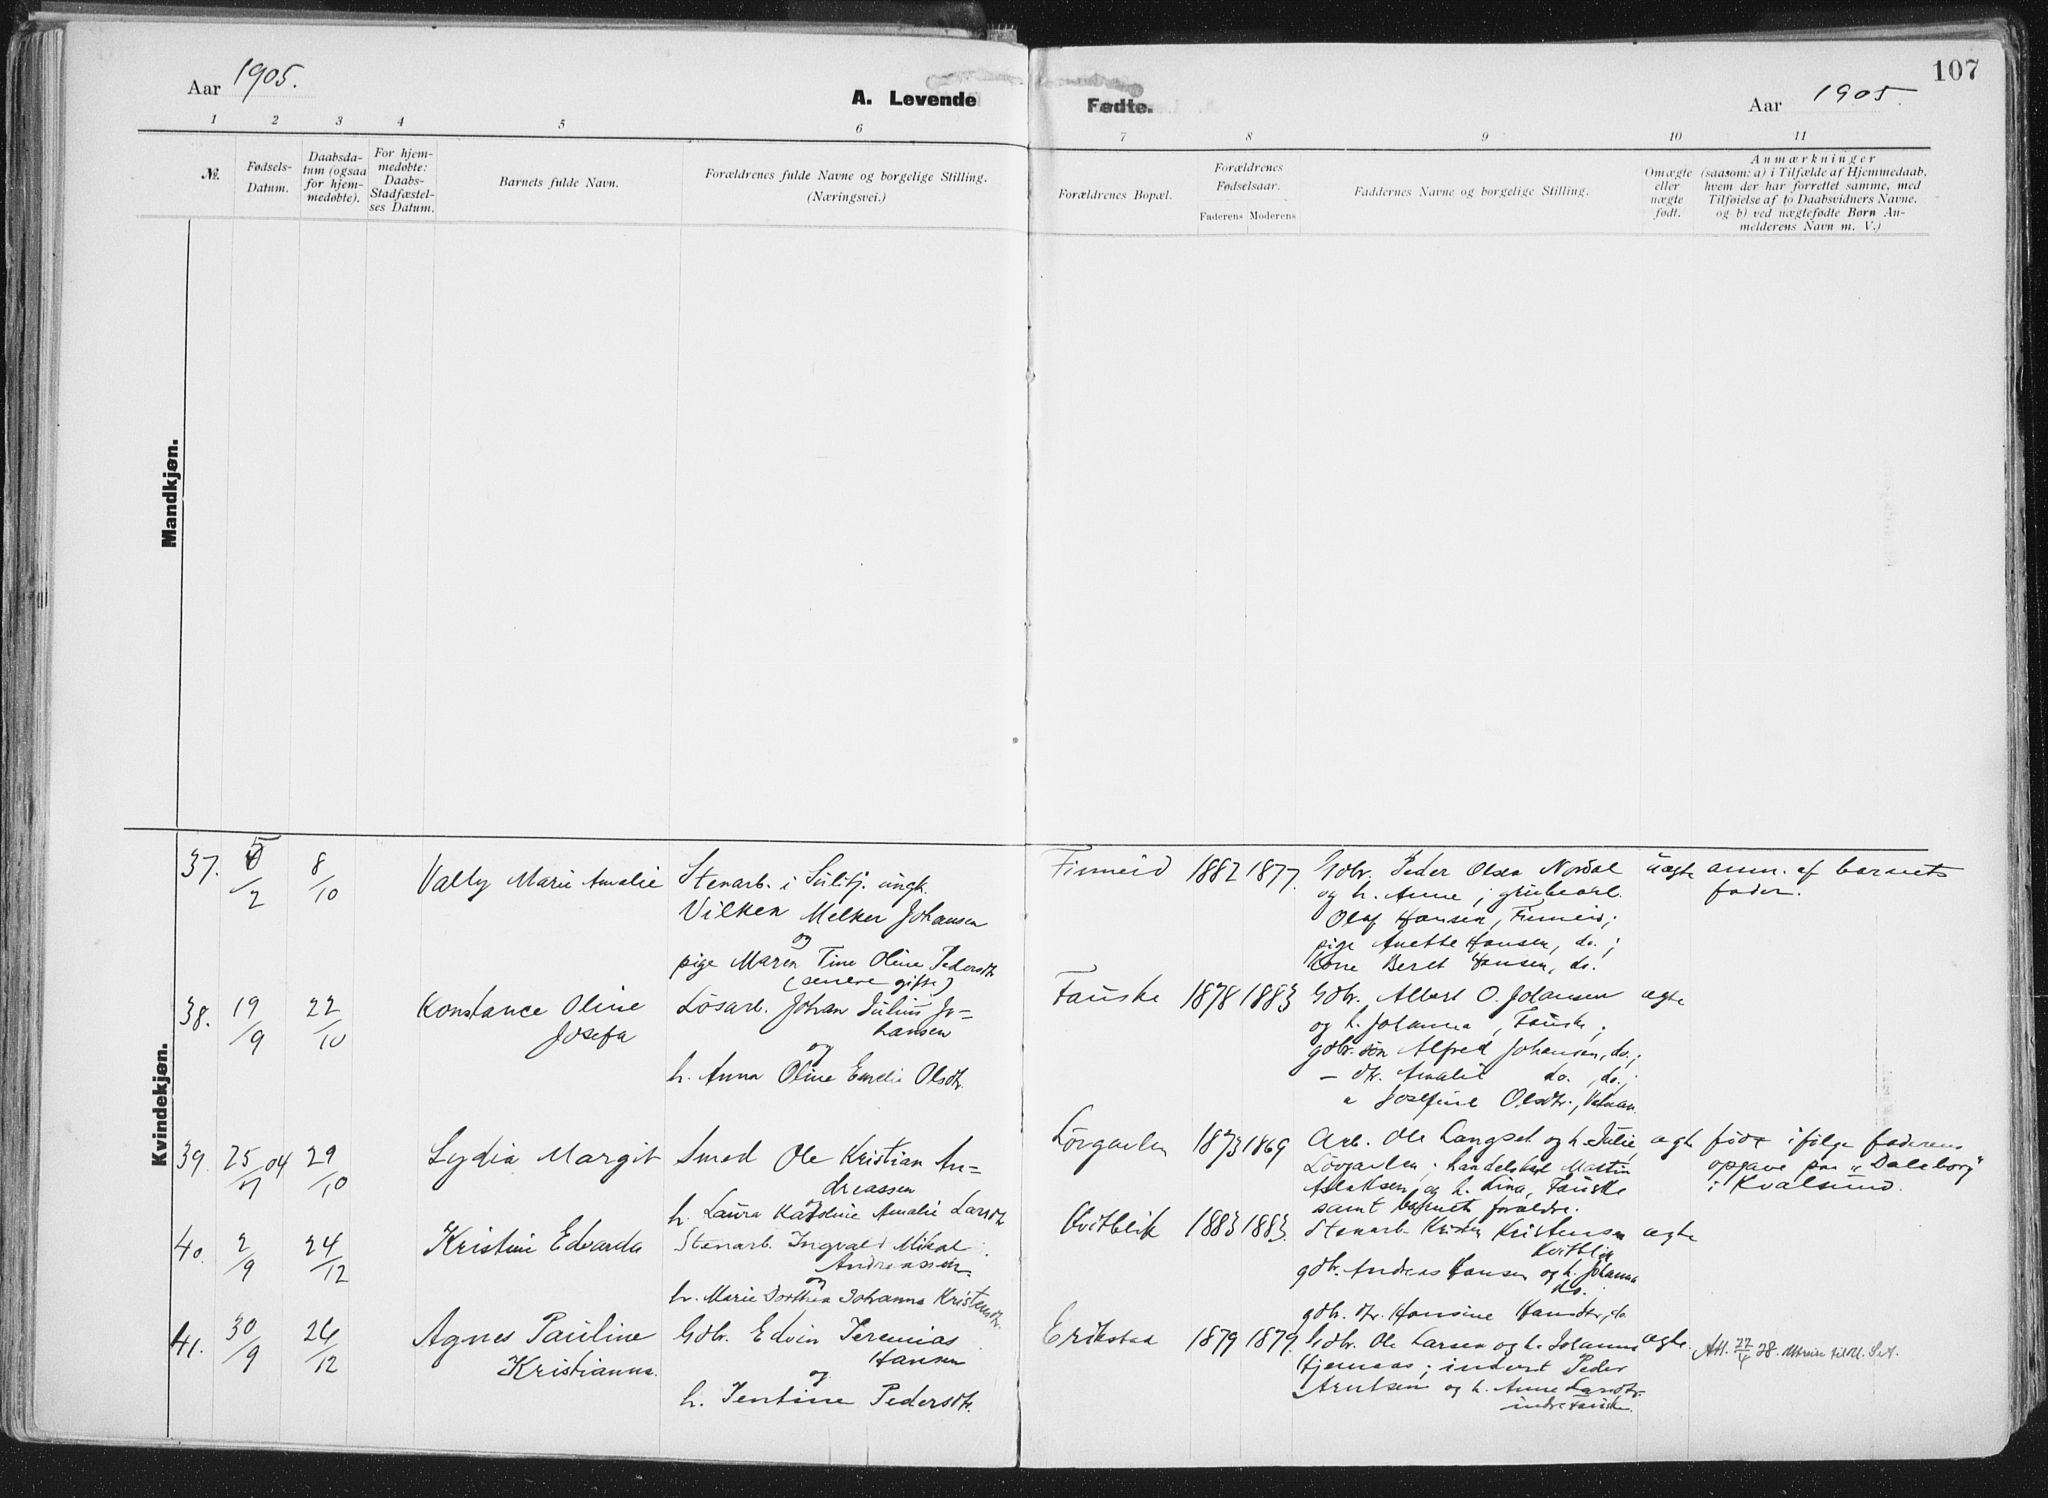 Aar 1905.
A. Levende Fødte.
Aar 1905.
107
1 2 3 4 5 6 7 8 9 10 11
№.
Fødsels-
Datum.
Daabsda-
tum (ogsaa
for hjem-
medøbte).
For hjem-
medøbte:
Daabs-
Stadfæstel-
ses Datum.
Barnets fulde Navn.
Forældrenes fulde Navne og borgelige Stilling.
(Næringsvei.)
Forældrenes Bopæl.
Forældrenes
Fødselsaar.
Faderens Moderens
Faddernes Navne og borgelige Stilling.
Omægte
eller
nægte
født.
Anmærkninger
(saasom: a) i Tilfælde af Hjemmedaab.
hvem der har forrettet samme, med
Tilføielse af to Daabsvidners Navne.
og b) ved nægtefødte Børn An-
melderens Navn m. V.)
Mandkjøn.
Kvindekjøn.
37. 5/2 8/10
Vally Marie Amalie
Stenarb. i Sulitj. ungk.
Vilken Melker Johansen
og
pige Maren Tine Oline Pedersdtr.
(senere gifte)
Finneid
1882 1877.
Gdbr. Peder Olsen Nordal
og h. Anne; grubearb.
Olaf Hansen, Finneid;
pige Anette Hansen, do.;
Kone Beret Hansen, do.
uægte
anm. af barnets
fader.
38. 19/9 22/10
Konstance Oline
Josefa
Løsarb. Johan Julius Jo-
hansen
og
h. Anna Oline Emelie Olsdtr.
Fauske
1878 1883
Gdbr. Albert O. Johansen
og h. Johanna, Fauske;
gdbr. søn Alfred Johansen, do.;
- dtr. Amalie do., do.;
" Josefine Olsdtr.,
ægte
39. 25/11 04 29/10
Lydia Margit
Smed Ole Kristian An-
dreassen
og
h. Laura Karoline Amalie Larsdtr.
Løvgavlen
1873 1869
Arb. Ole Langset og h. Julie,
Løvgavlen; handelsbet. Martin
Aslaksen og h. Lina, Fauske
samt barnets forældre.
ægte
født ifølge faderens
opgave paa "Daleborg"
i Kvalsund.
40. 2/9 24/12
Kristine Edvarda
Stenarb. Ingvald Mikal
Andreassen
og
h. Marie Dorthea Johanna Kristensdtr.
Kvitblik
1883 1883.
Stenarb. Kristen Kristensen
Kvitblik
gdbr. Andreas Hansen og h. Johanna
do.
gdbr. dtr. Hansine Hansdtr., do.
ægte
41. 30/9 26/12
Agnes Pauline
Kristianna.
Gdbr. Edvin Jeremias
Hansen
og
h. Jentine Pedersdtr.
Erikstad
1879 1879.
Gdbr. Ole Larsen og h. Johanna
; inderst Peder
Arntsen og h. Anne Larsdtr.
indre Fauske.
ægte.
Att. 27/4 28.